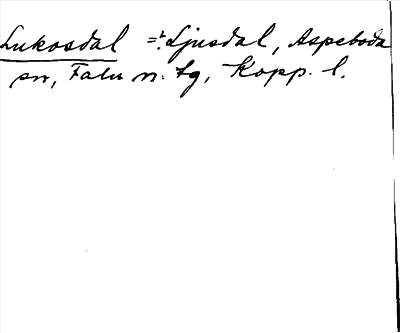 Lukosdal =? Ljusdal, Aspeboda
sn, Falu n. tg, Kopp. l.